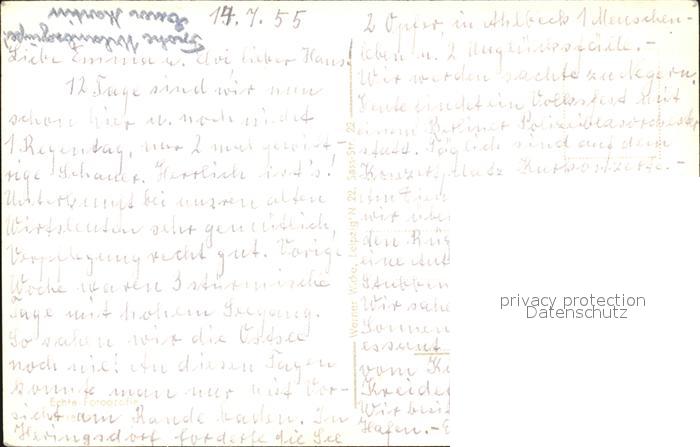 14.7.55
Frohe Urlaubsgrüße!
Euer Martin
Liebe Emma u. lieber Hans!
12 Tage sind wir nun
schon hier u. noch nicht
1 Regentag, nur 2 mal gewitt-
rige Schauer. Herrlich ist's!
Unterkunft bei unsren alten
Wirtsleuten sehr gemütlich,
Verpflegung recht gut. Vorige
Woche waren 3 stürmische
Tage mit hohem Seegang.
So sahen wir die Ostsee
noch nie! An diesen Tagen
konnte man nur mit Vor-
sicht am Rande baden. In
Heringsdorf forderte die See
2 Opfer, in Ahlbeck 1 Menschen-
leben u. 2 Unglücksfälle. -
Wir werden sachte zu Negern.
Heute findet ein Volksfest mit
einem Berliner Polizeiblasorchester
statt. Täglich sind auf dem
Konzertplatz Kurkonzerte. -
wir übe
den Rüg
eine Aut
Stubben
Wir sahe
Sonnen
essant
vom K
Kreide
Wir bes
Hafen. - E
Echte Fotografie
Werner Wirke, Leipzig N 22, Sass-Str. 22
privacy protection
Datenschutz